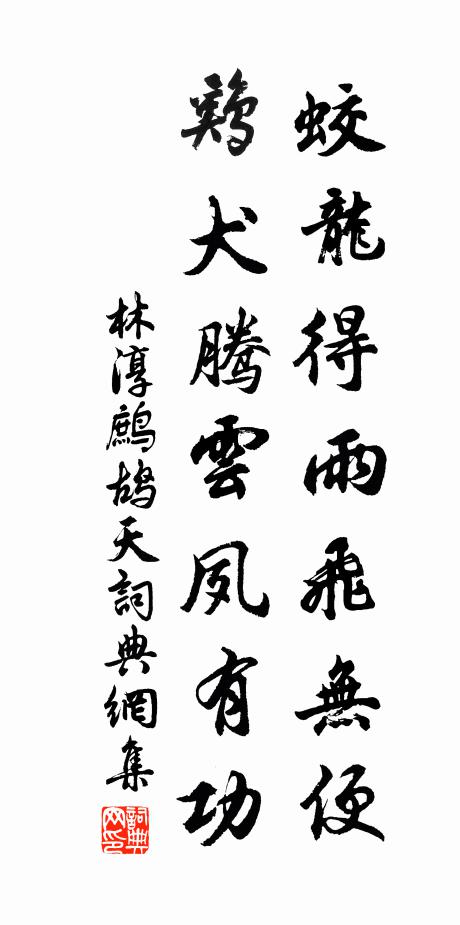 蛟龍得雨飛無便
鷄犬騰雲夙有功
林淳鷓鴣天詞典網集
詞典网印